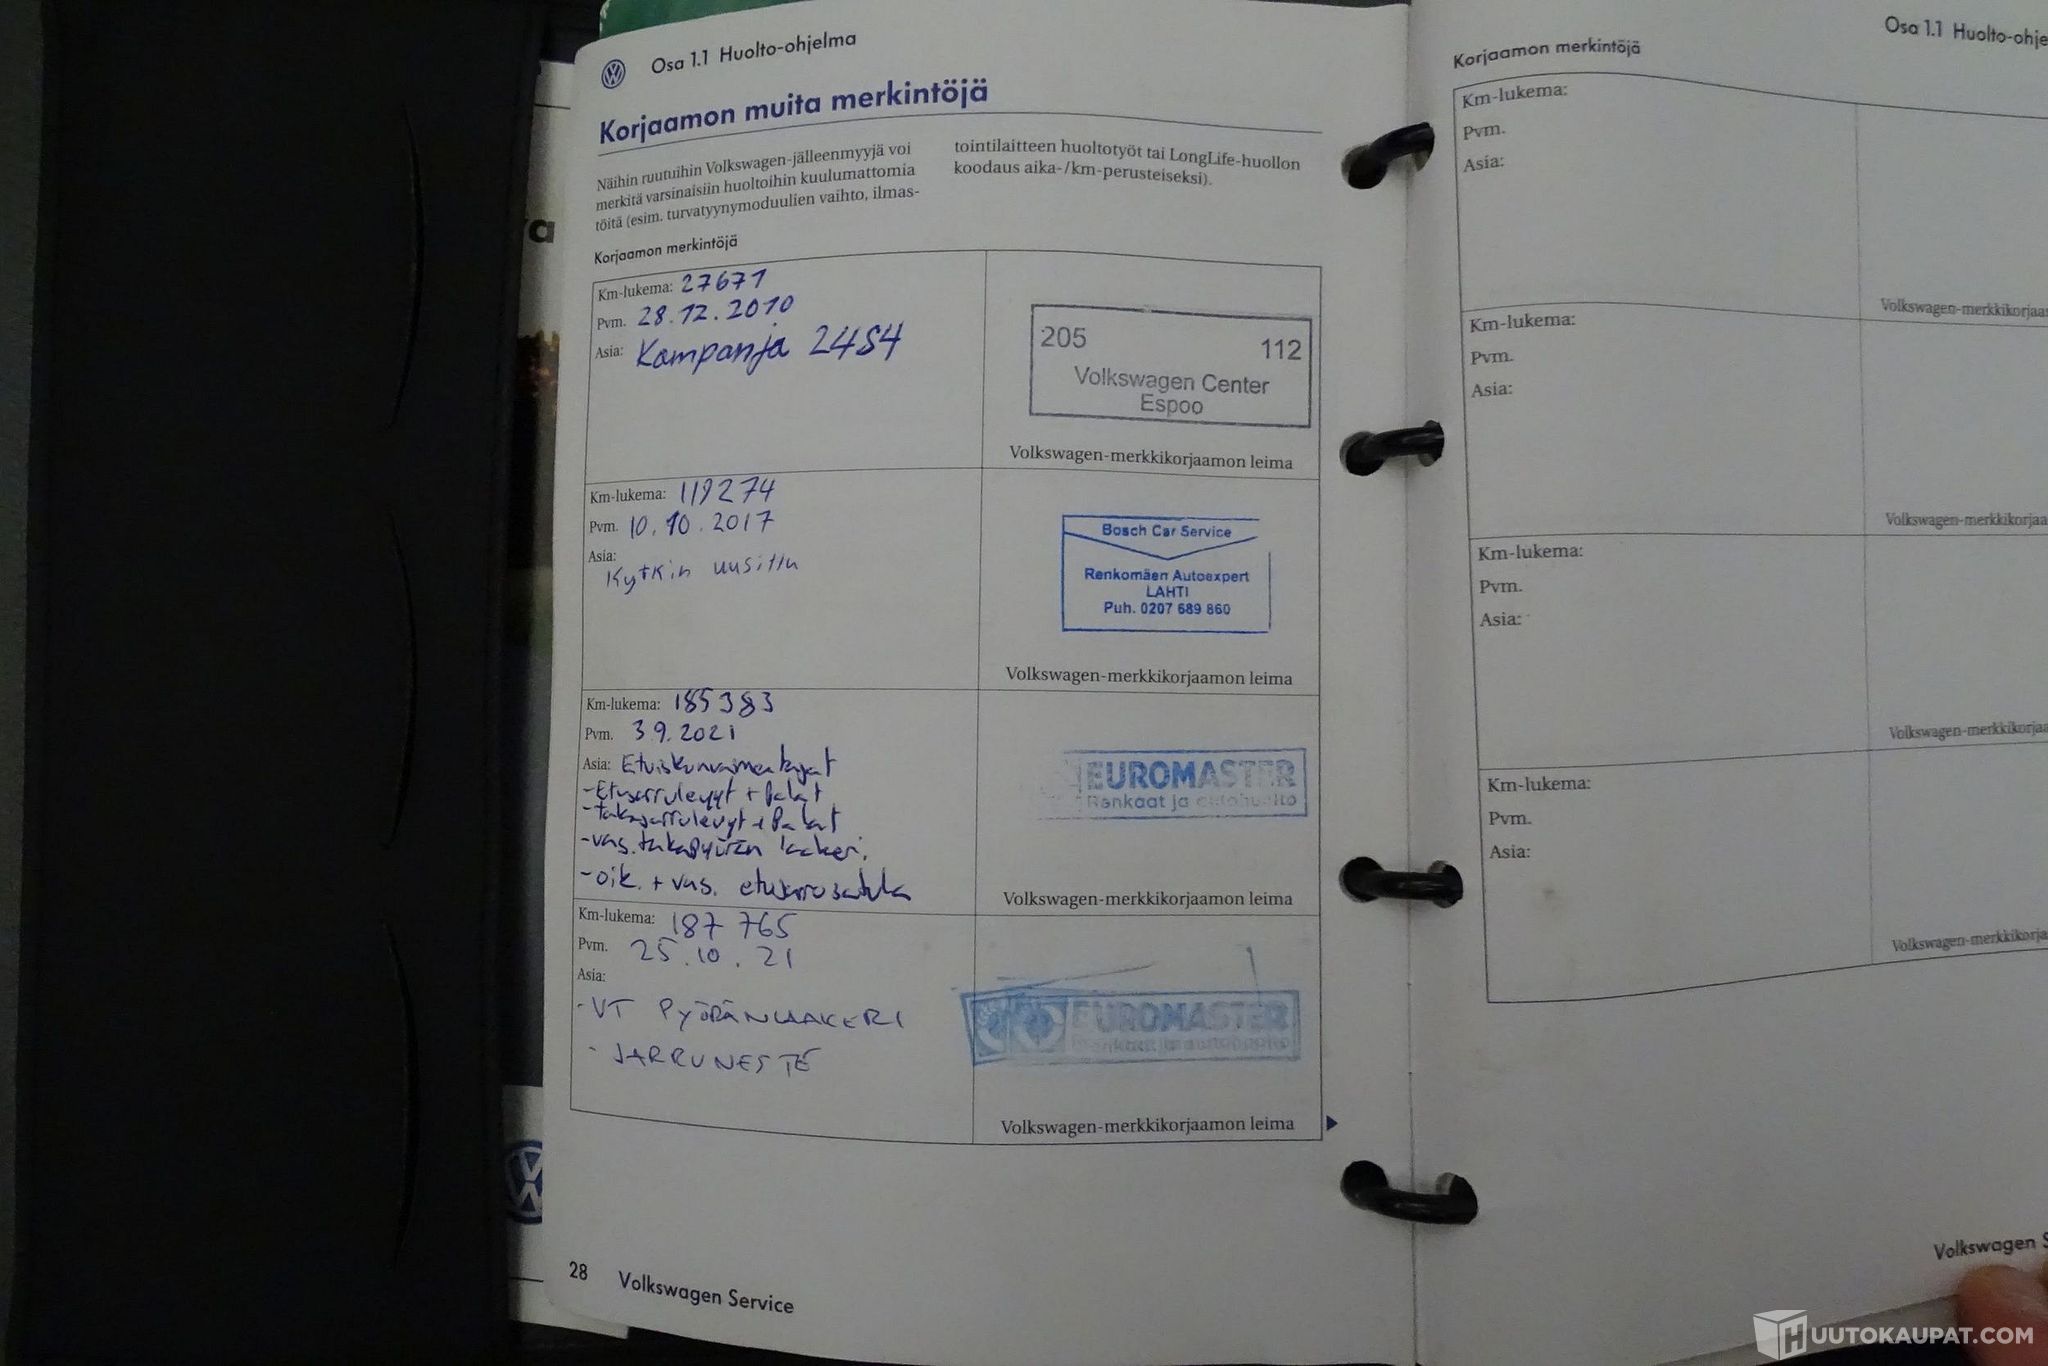 Osa 1.1 Huolto-ohjelma
Korjaamon muita merkintöjä
Näihin ruutuihin Volkswagen-jälleenmyyjä voi
merkitä varsinaisiin huoltoihin kuulumattomia
töitä (esim. turvatyynymoduulien vaihto, ilmas-
tointilaitteen huoltotyöt tai LongLife-huollon
koodaus aika-/km-perusteiseksi).
Korjaamon merkintöjä
Km-lukema: 27671
Pvm. 28.12.2010
Asia: Kampanja 24S4
205 112
Volkswagen Center
Espoo
Volkswagen-merkkikorjaamon leima
Km-lukema: 119274
Pvm. 10.10.2017
Asia:
Kytkin uusittu
Bosch Car Service
Renkomäen Autoexpert
LAHTI
Puh. 0207 689 860
Volkswagen-merkkikorjaamon leima
Km-lukema: 185383
Pvm. 3.9.2021
Asia: Etuiskunvaimentajat
-Etujarrulevyt + Palat
-takajarrulevyt + Palat
-vas. takapyörän laakeri
-oik. + vas. etujarrusatula
EUROMASTER
Renkaat ja autohuolto
Volkswagen-merkkikorjaamon leima
Km-lukema: 187 765
Pvm. 25.10.21
Asia:
-VT PYÖRÄNLAAKERI
- JARRUNESTE
EUROMASTER
Renkaat ja autohuolto
Volkswagen-merkkikorjaamon leima
28 Volkswagen Service
Osa 1.1 Huolto-ohje
Korjaamon merkintöjä
Km-lukema:
Pvm.
Asia:
Volkswagen-merkkikorjaa
Km-lukema:
Pvm.
Asia:
Volkswagen-merkkikorjaa
Km-lukema:
Pvm.
Asia:
Volkswagen-merkkikorjaa
Km-lukema:
Pvm.
Asia:
Volkswagen-merkkikorja
Volkswagen S
va
HUUTOKAUPAT.COM